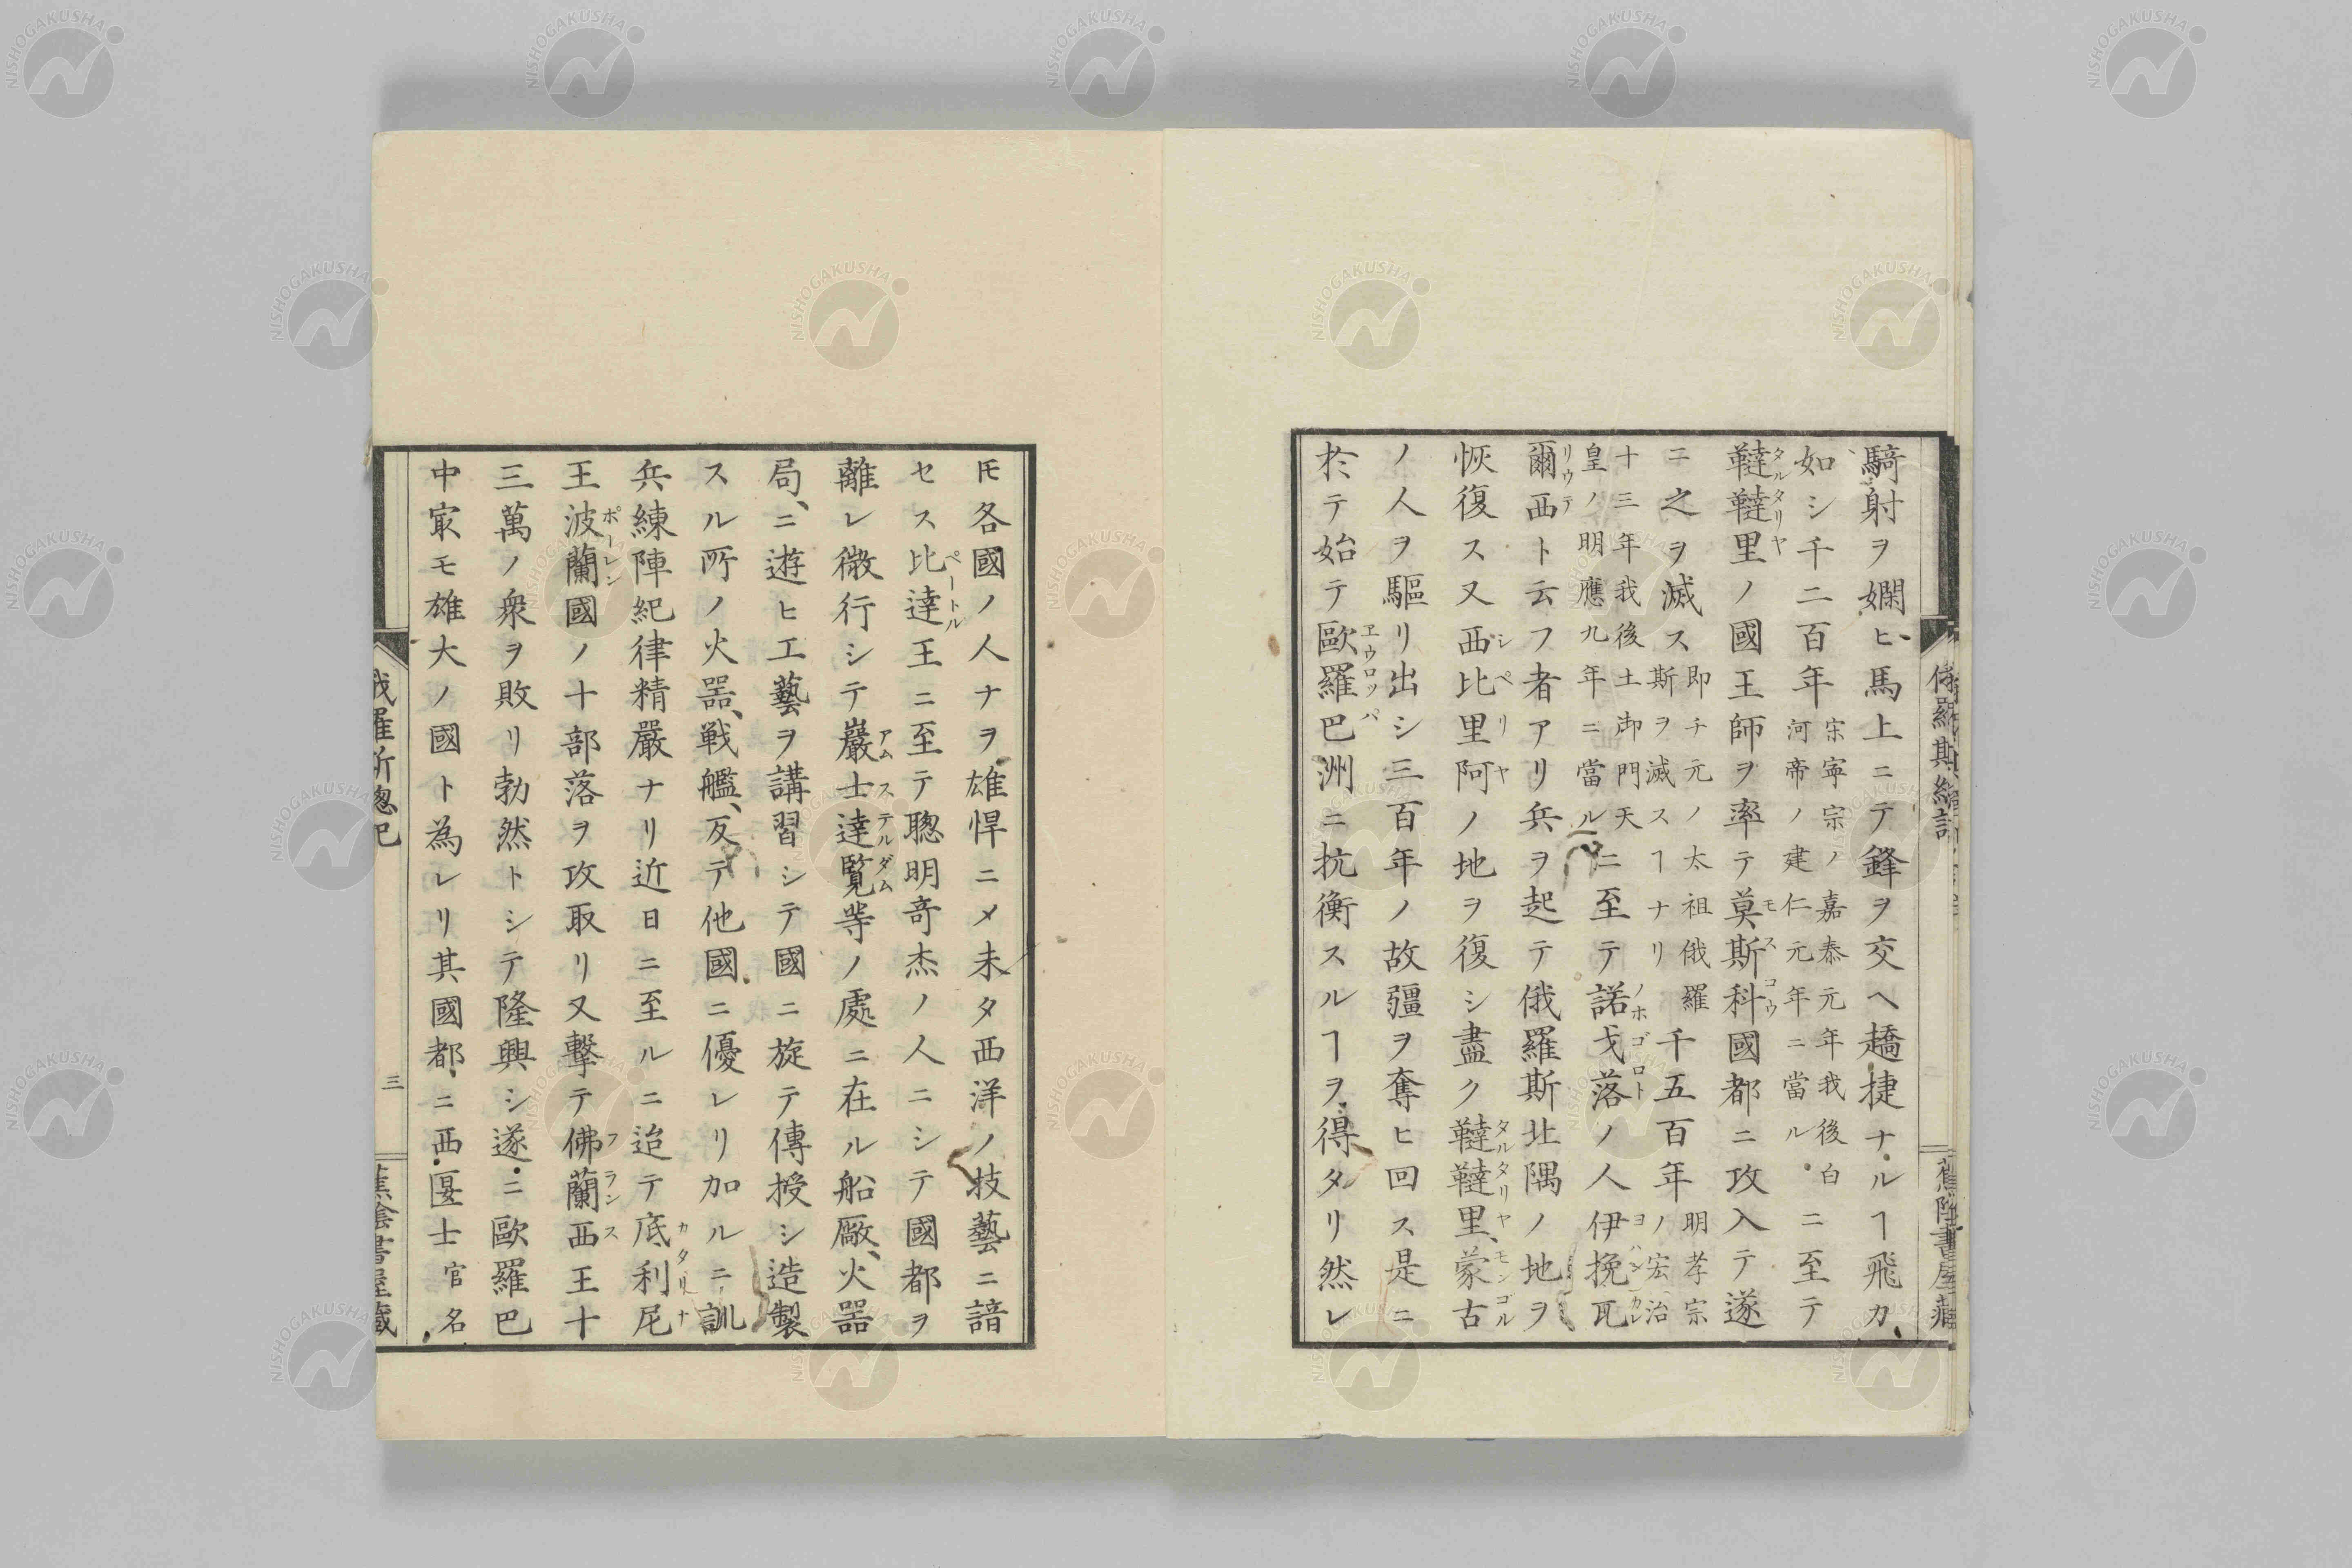 騎射ヲ嫻ヒ馬上ニテ鋒ヲ交ヘ趫捷ナルヿ飛カ
如シ千二百年宋寧宗ノ嘉泰元年我後白河帝ノ建仁元年ニ當ルニ至テ
韃韃里ノ國王師ヲ率テ莫斯科國都ニ攻入テ遂
ニ之ヲ滅ス即チ元ノ太祖俄羅斯ヲ滅スヿナリ千五百年ノ明孝宗宏治
十三年我後土御門天皇ノ明應九年ニ當ルニ至テ諾戈落ノ人伊挽瓦
爾西ト云フ者アリ兵ヲ起テ俄羅斯北隅ノ地ヲ
恢復ス又西比里阿ノ地ヲ復シ盡ク韃韃里、蒙古
ノ人ヲ驅リ出シ三百年ノ故疆ヲ奪ヒ回ス是ニ
於テ始テ歐羅巴洲ニ抗衡スルヿヲ得タリ然レ
俄羅斯總記
蕉陰書屋藏
𪜈各國ノ人ナヲ雄悍ニ〆未タ西洋ノ技藝ニ諳
セス比達王ニ至テ聰明奇杰ノ人ニシテ國都ヲ
離レ微行シテ巖士達覽等ノ處ニ在ル船廠、火器
局、ニ遊ヒ工藝ヲ講習シテ國ニ旋テ傳授シ造製
スル所ノ火器、戰艦、反テ他國ニ優レリ加ルニ訓
兵練陣紀律精嚴ナリ近日ニ至ルニ迨テ底利尼
王波蘭國ノ十部落ヲ攻取リ又擊テ佛蘭西王十
三萬ノ衆ヲ敗リ勃然トシテ隆興シ遂ニ歐羅巴
中㝡モ雄大ノ國ト為レリ其國都ニ西匽士官名
俄羅斯總記
三
蕉陰書屋藏